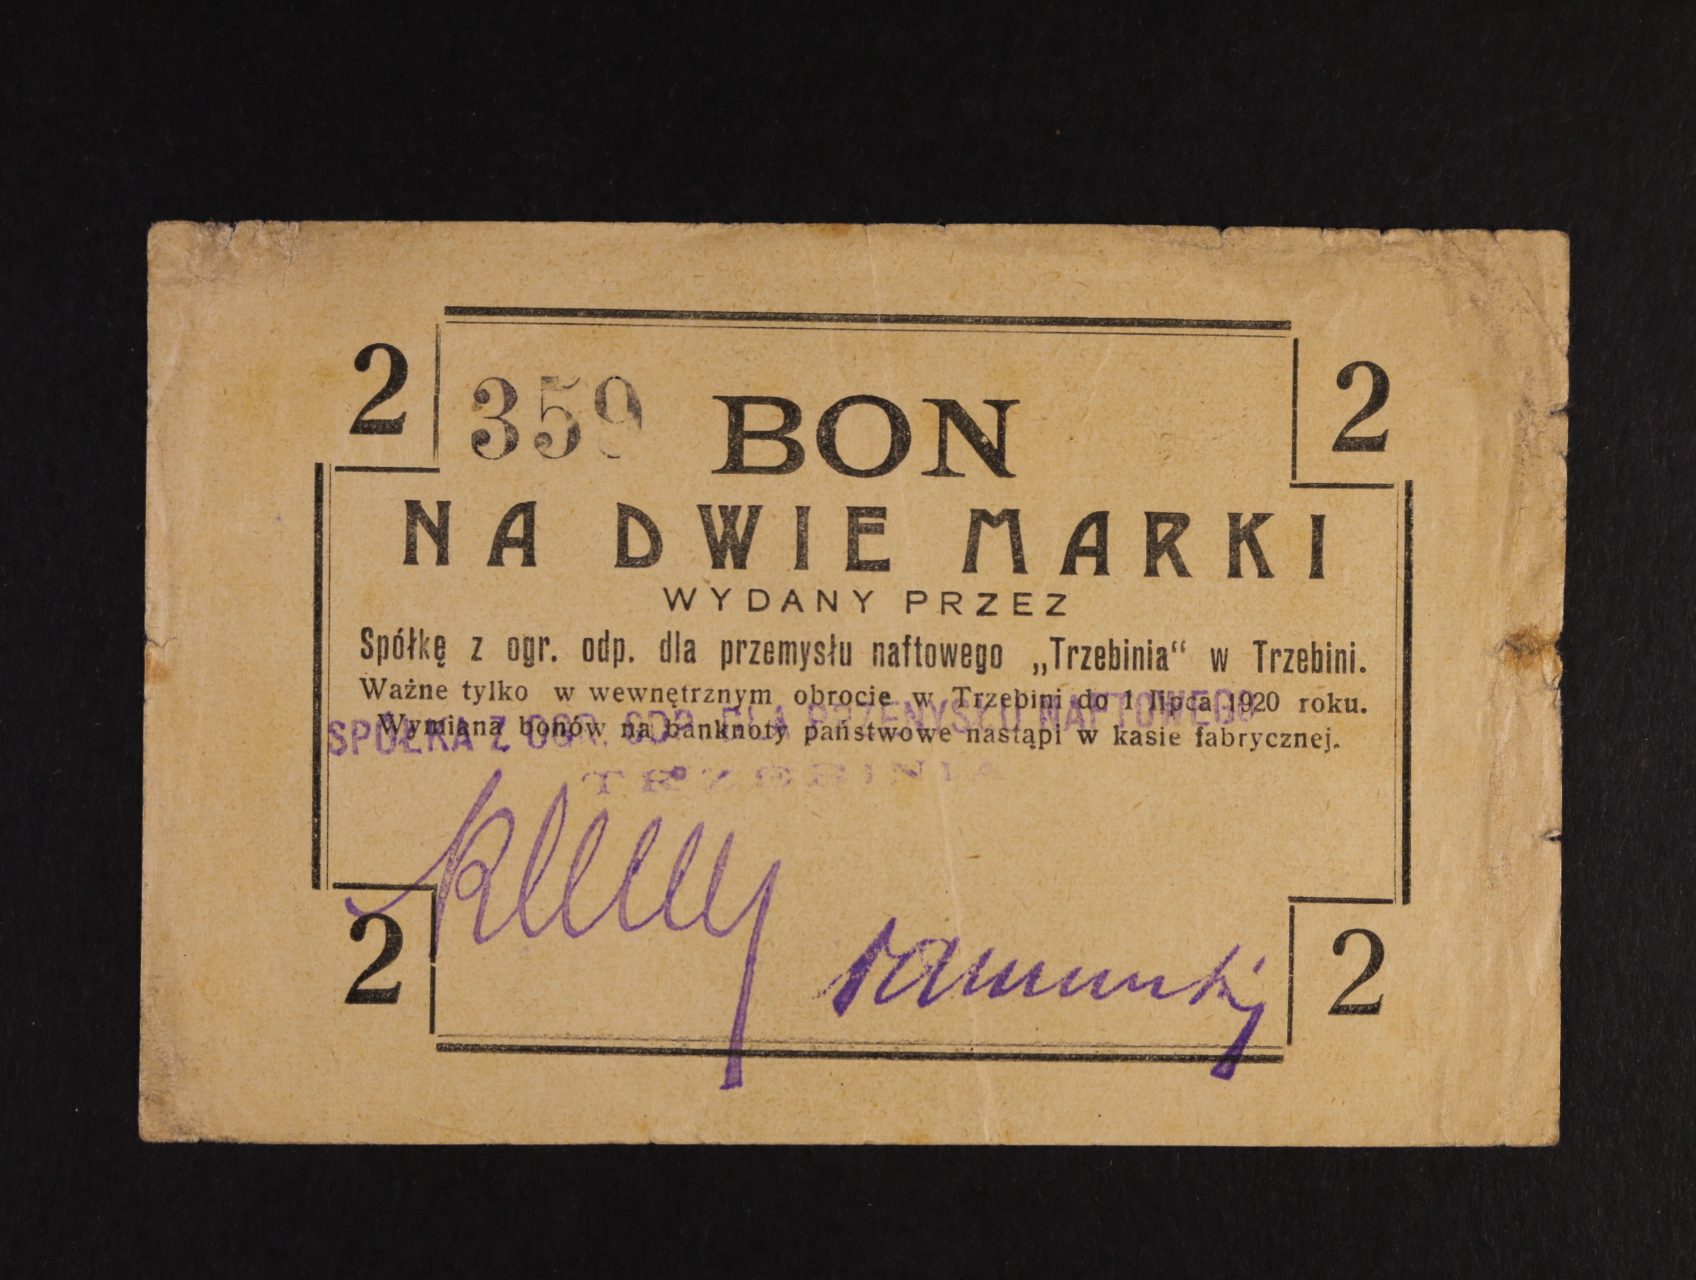 2 2
359 BON
NA DWIE MARKI
WYDANY PRZEZ
Spółkę z ogr. odp. dla przemysłu naftowego „Trzebinia“ w Trzebini.
Ważne tylko w wewnętrznym obrocie w Trzebini do 1 lipca 1920 roku.
Wymiana bonów na banknoty państwowe nastąpi w kasie fabrycznej.
SPÓŁKA Z OGR. ODP. DLA PRZEMYSŁU NAFTOWEGO
TRZEBINIA
2 2